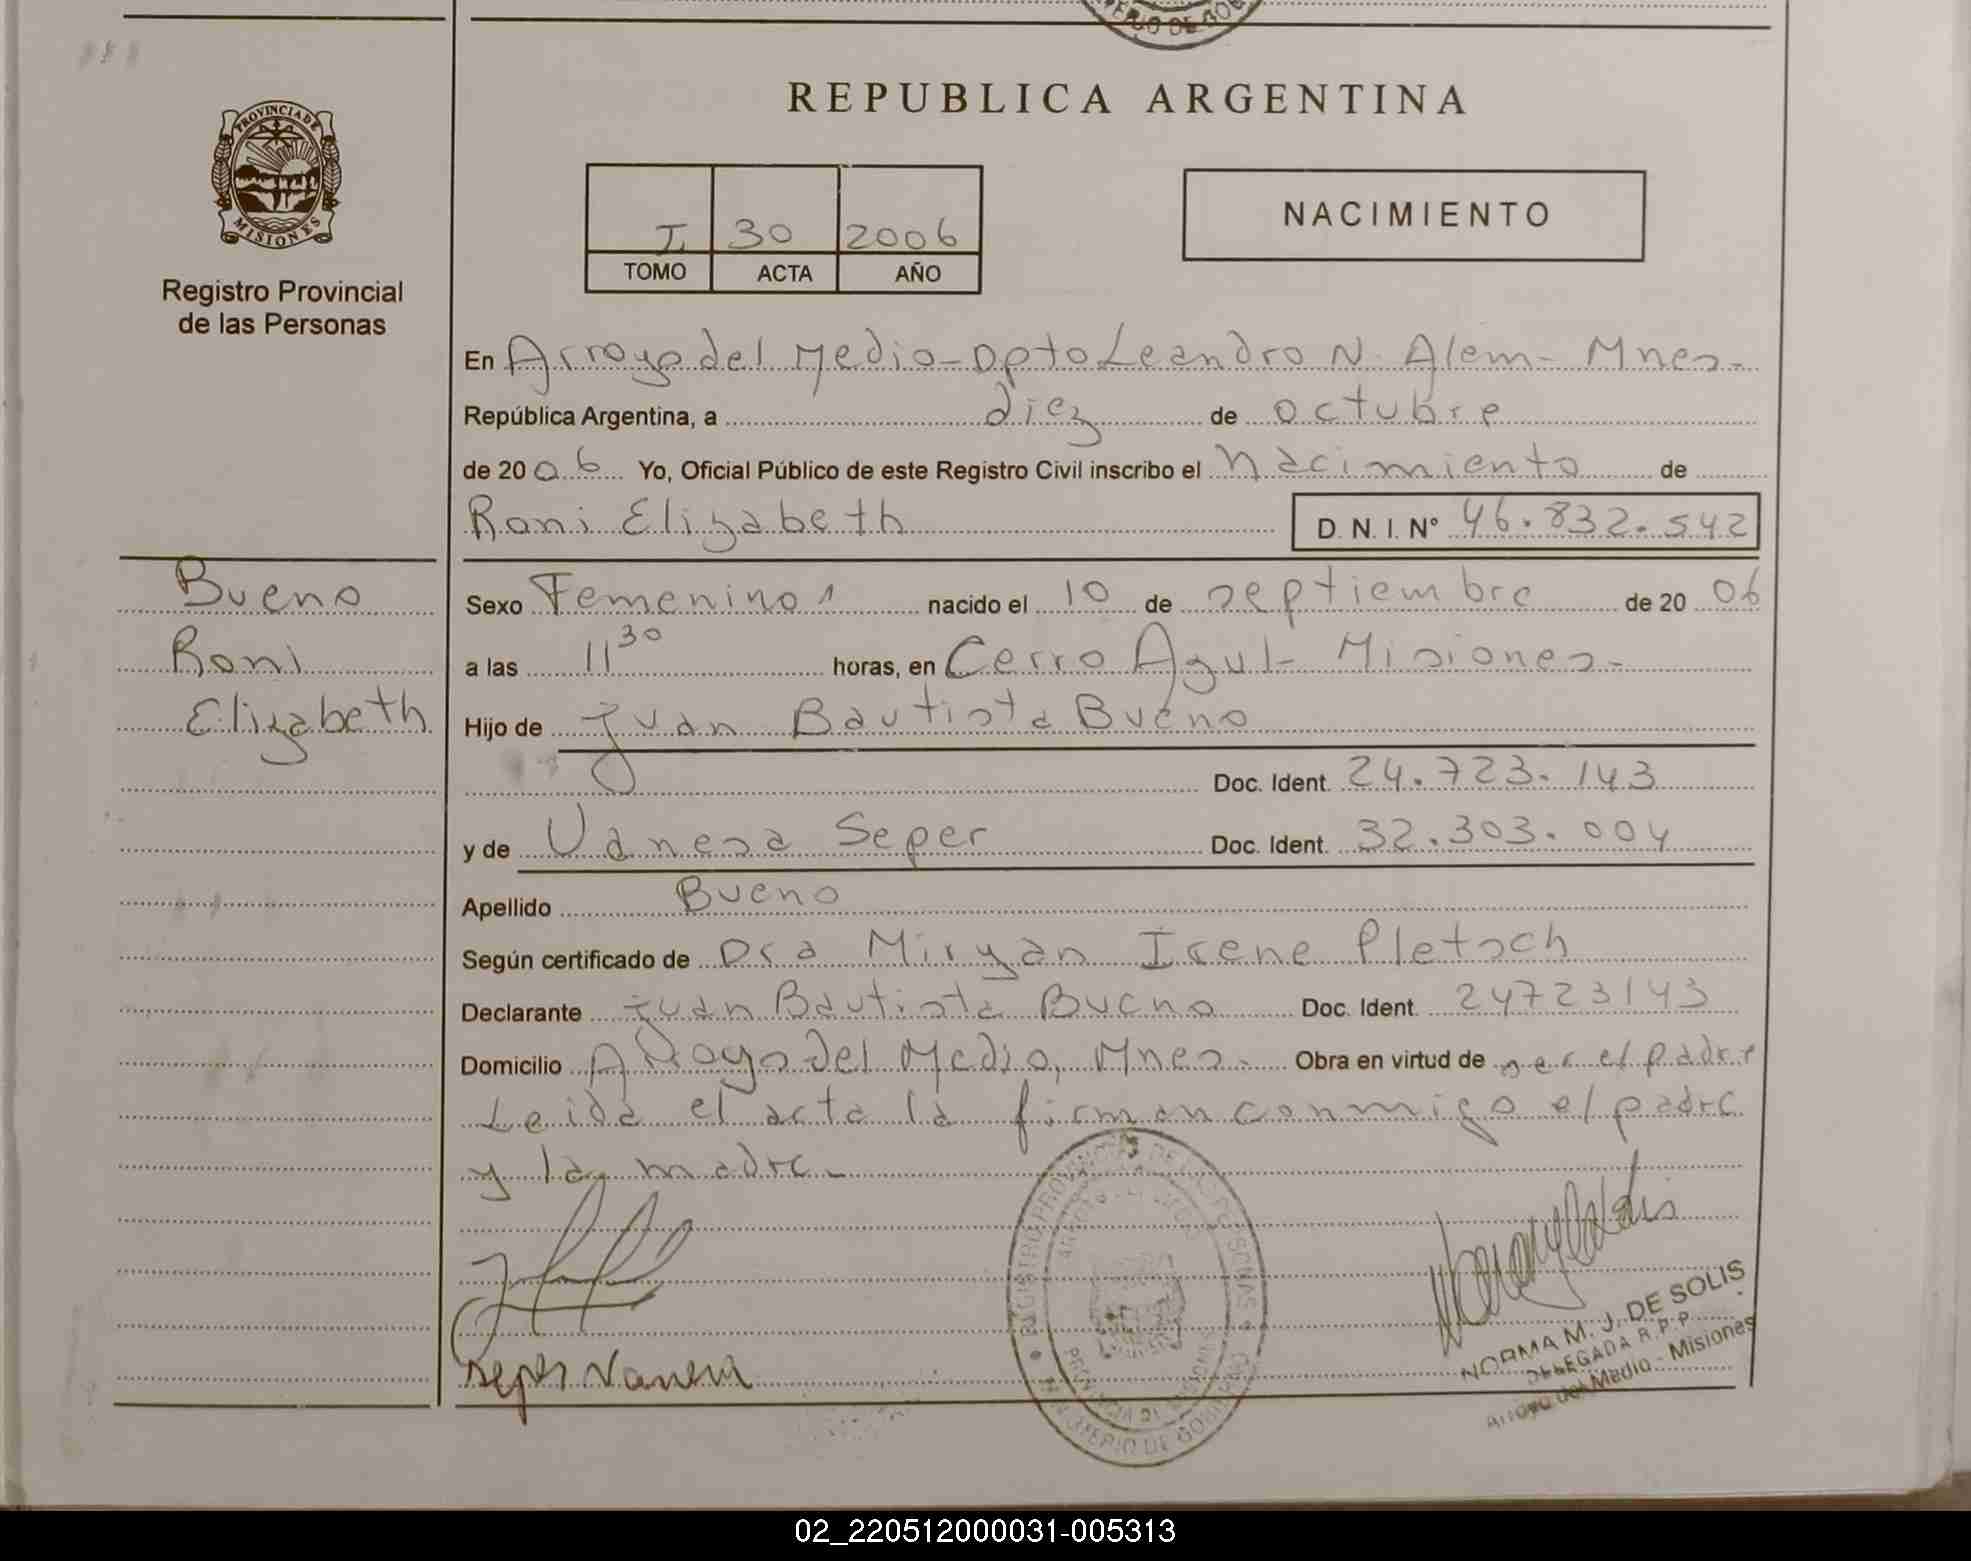 MINISTERIO DE GOB
REPUBLICA ARGENTINA
PROVINCIA DE
MISIONES
Registro Provincial
de las Personas
I 30 2006
TOMO ACTA AÑO
NACIMIENTO
En Arroyo del Medio - Dpto Leandro N. Alem - Mnes -
República Argentina, a diez de octubre
de 2006 Yo, Oficial Público de este Registro Civil inscribo el nacimiento de
Roni Elizabeth D. N. I. N° 46.832.542
Bueno
Roni
Elizabeth
Sexo Femenino nacido el 10 de septiembre de 2006
a las 11 30 horas, en Cerro Azul - Misiones -
Hijo de Juan Bautista Bueno
Doc. Ident. 24.723.143
y de Vanesa Seper Doc. Ident. 32.303.004
Apellido Bueno
Según certificado de Dra Miryan Irene Pletsch
Declarante Juan Bautista Bueno Doc. Ident. 24723143
Domicilio Arroyo del Medio, Mnes - Obra en virtud de ser el padre
Leida el acta la firman conmigo el padre
y la madre -
REGISTRO PROVINCIAL DE LAS PERSONAS
ARROYO DEL MEDIO
PROVINCIA DE MISIONES
MINISTERIO DE GOBIERNO
Seper Vanesa
NORMA M. J. DE SOLIS
DELEGADA R.P.P.
Arroyo del Medio - Misiones
02_220512000031-005313